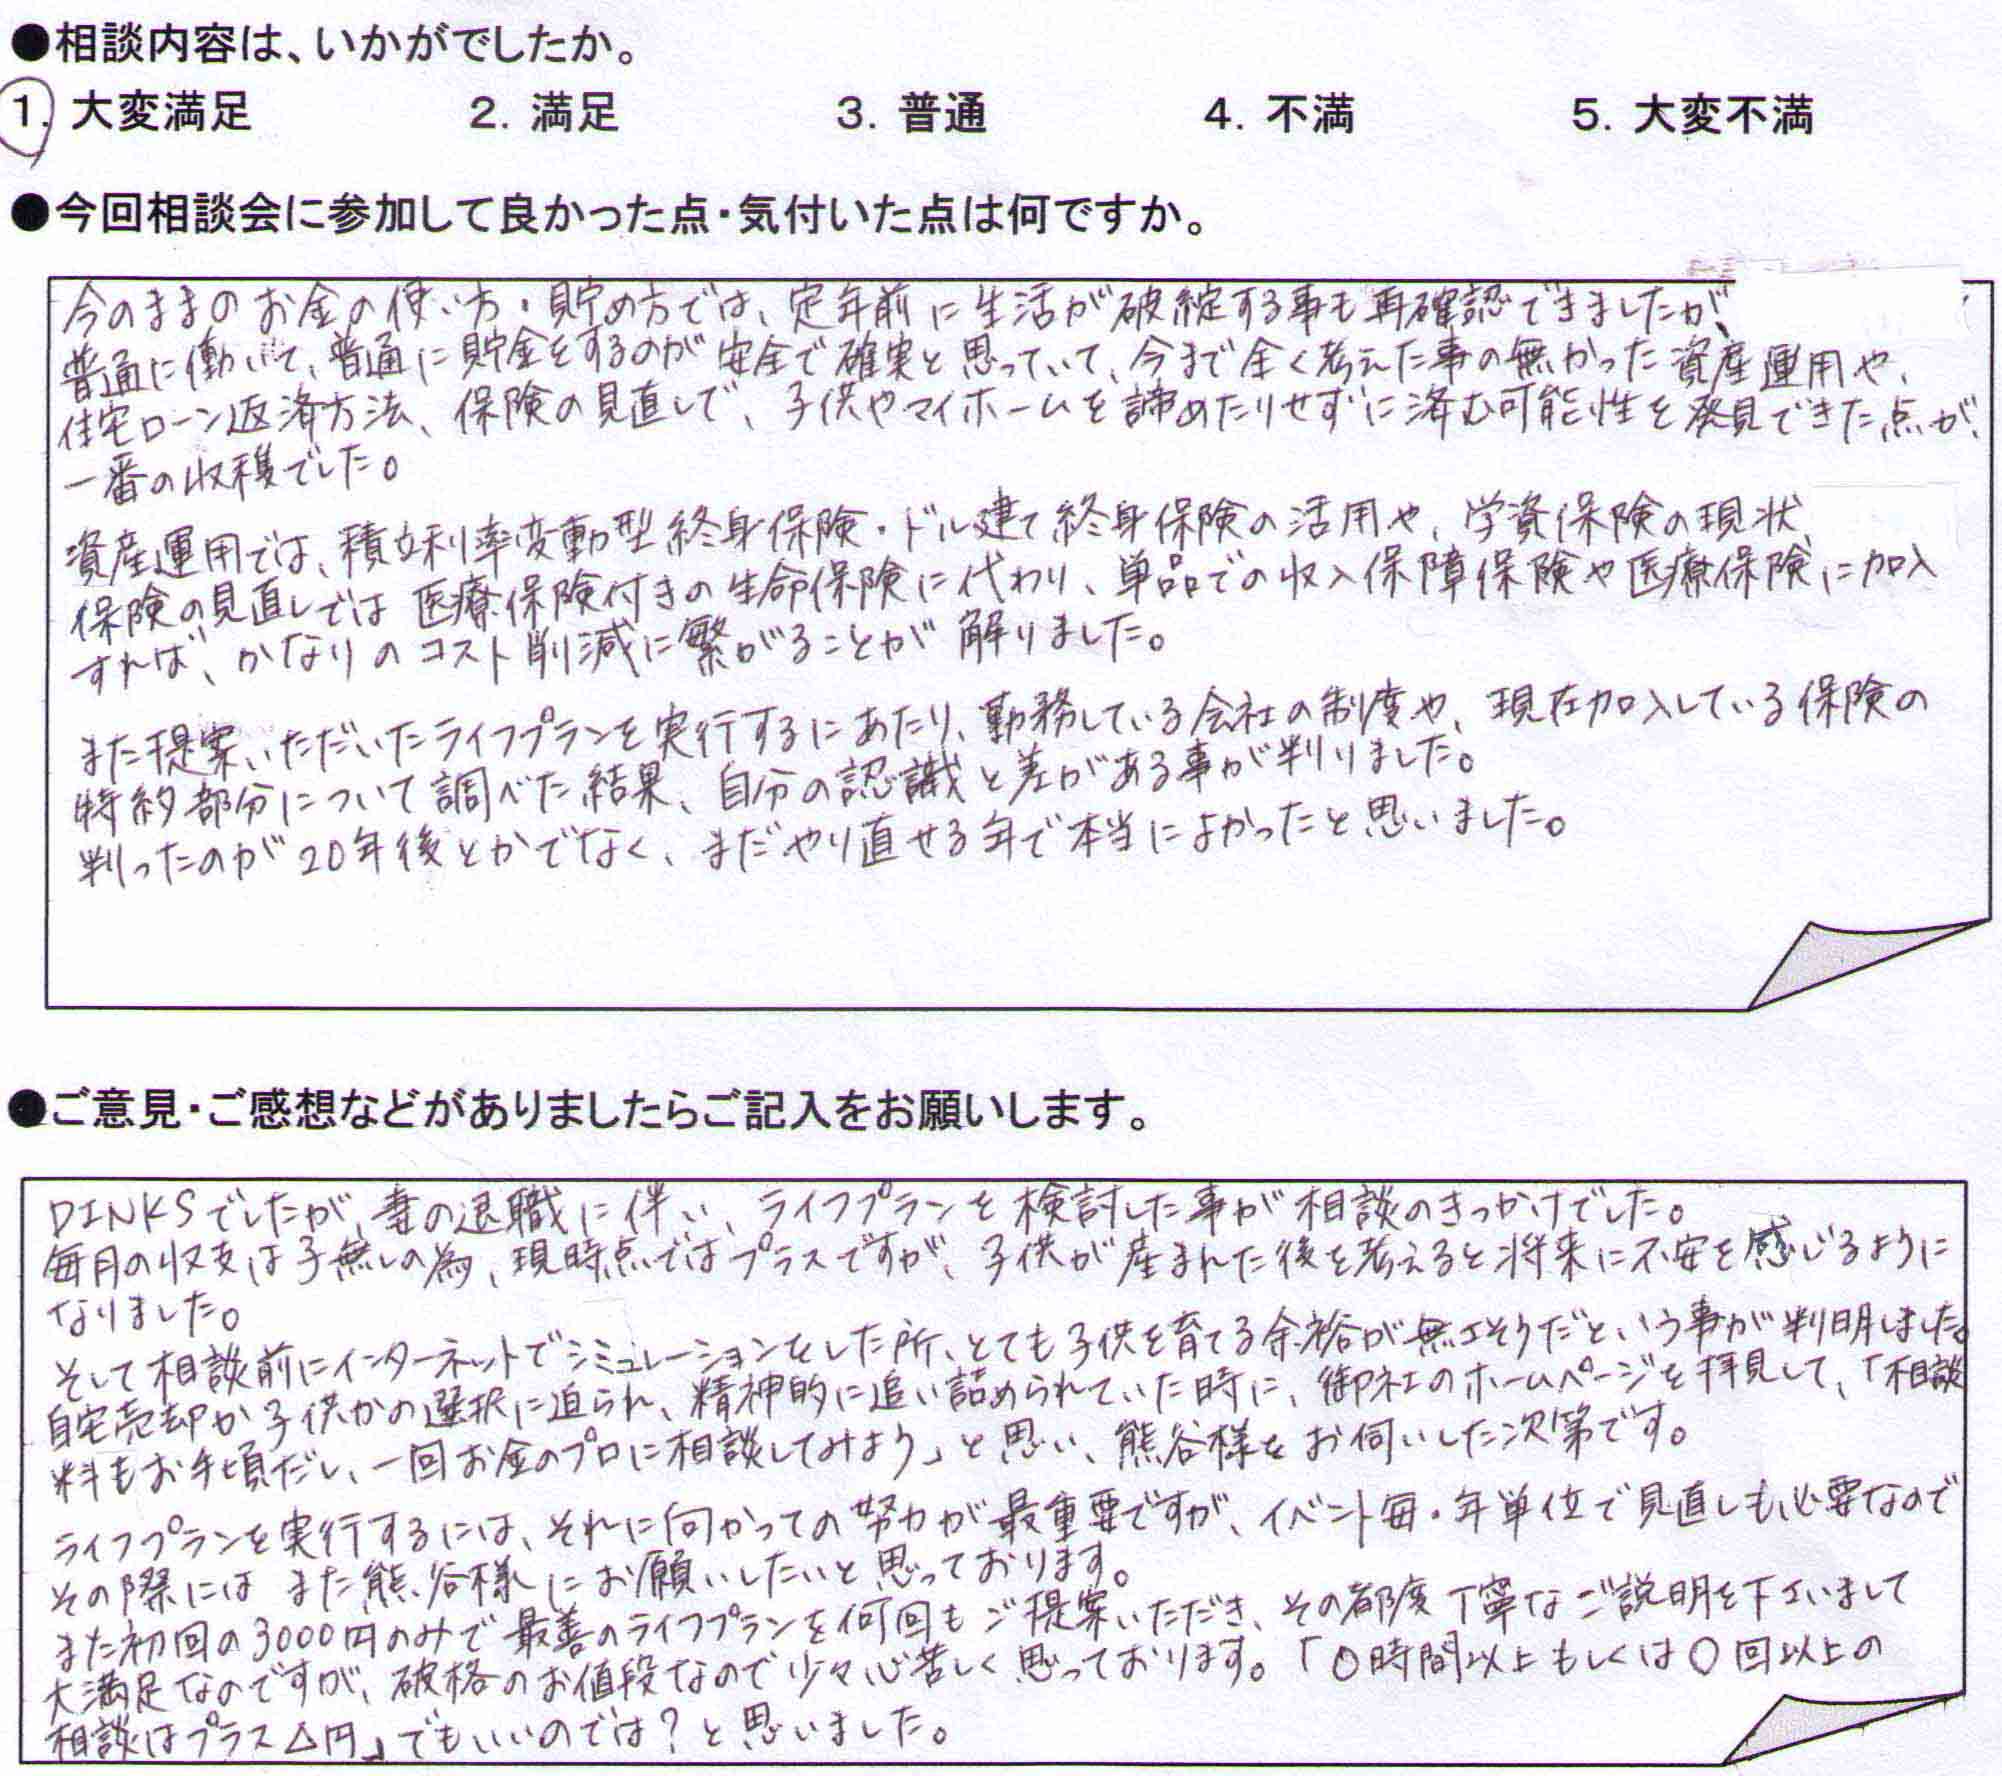 ●相談内容は、いかがでしたか。
1. 大変満足 2. 満足 3. 普通 4. 不満 5. 大変不満
●今回相談会に参加して良かった点・気付いた点は何ですか。
今のままのお金の使い方・貯め方では、定年前に生活が破綻する事も再確認できましたが、
普通に働いて、普通に貯金をするのが安全で確実と思っていて、今まで全く考えた事の無かった資産運用や、
住宅ローン返済方法、保険の見直しで、子供やマイホームを諦めたりせずに済む可能性を発見できた点が、
一番の収穫でした。
資産運用では、積立利率変動型終身保険・ドル建て終身保険の活用や、学資保険の現状、
保険の見直しでは医療保険付きの生命保険に代わり、単品での収入保障保険や医療保険に加入
すれば、かなりのコスト削減に繋がることが解りました。
また提案いただいたライフプランを実行するにあたり、勤務している会社の制度や、現在加入している保険の
特約部分について調べた結果、自分の認識と差がある事が判りました。
判ったのが20年後とかでなく、まだやり直せる年で本当によかったと思いました。
●ご意見・ご感想などがありましたらご記入をお願いします。
DINKSでしたが、妻の退職に伴い、ライフプランを検討した事が相談のきっかけでした。
毎月の収支は子無しの為、現時点ではプラスですが、子供が産まれた後を考えると将来に不安を感じるように
なりました。
そして相談前にインターネットでシミュレーションをした所、とても子供を育てる余裕が無さそうだという事が判明しました。
自宅売却か子供かの選択に迫られ、精神的に追い詰められていた時に、御社のホームページを拝見して、「相談
料もお手頃だし、一回お金のプロに相談してみよう」と思い、熊谷様をお伺いした次第です。
ライフプランを実行するには、それに向かっての努力が最重要ですが、イベント毎・年単位で見直しも必要なので
その際にはまた熊谷様にお願いしたいと思っております。
また初回の3000円のみで最善のライフプランを何回もご提案いただき、その都度丁寧なご説明を下さいまして
大満足なのですが、破格のお値段なので少々心苦しく思っております。「〇時間以上もしくは〇回以上の
相談はプラス△円」でもいいのでは?と思いました。